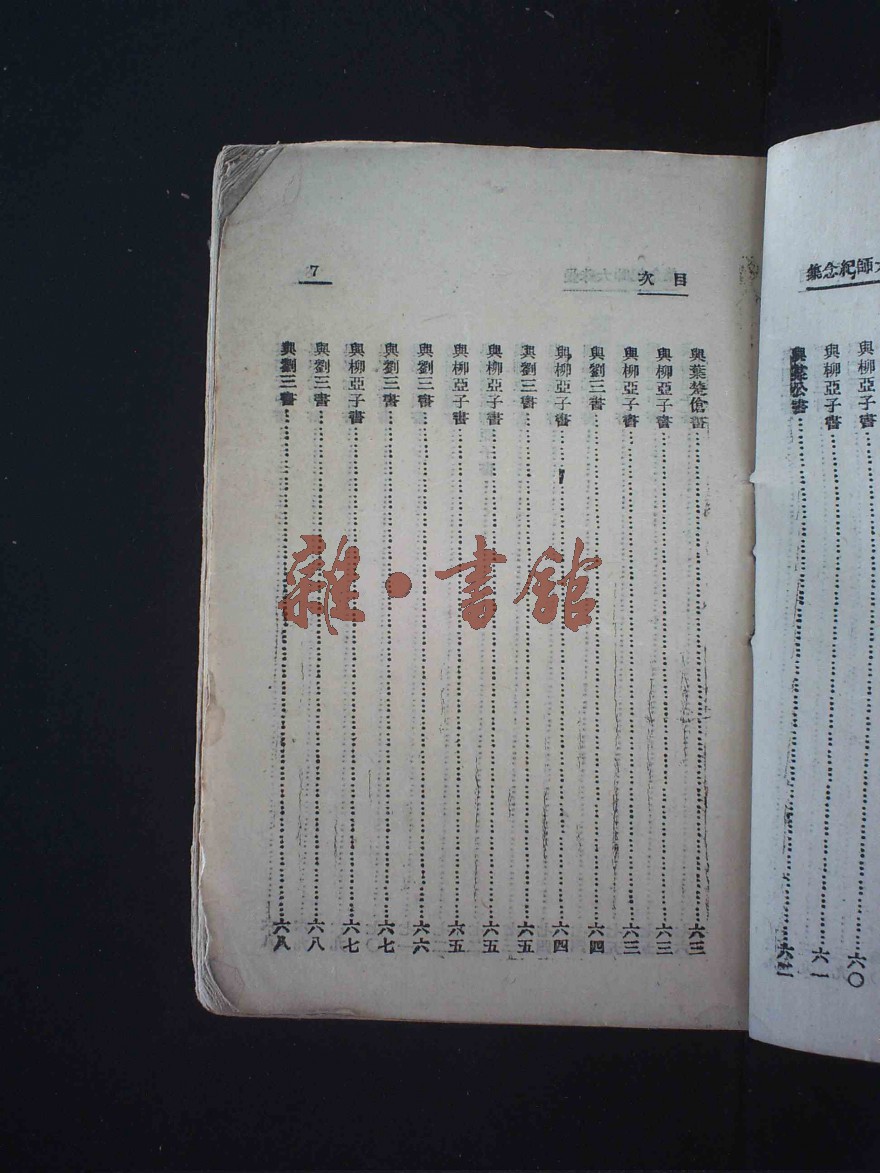 師紀念集
與柳亞子書……六〇
與柳亞子書……六一
目次
7
與葉楚傖書……六三
與柳亞子書……六三
與柳亞子書……六三
與劉三書……六四
與柳亞子書……六四
與劉三書……六五
與柳亞子書……六五
與柳亞子書……六五
與劉三書……六六
與劉三書……六七
與柳亞子書……六七
與劉三書……六八
與劉三書……六八
雜·書館